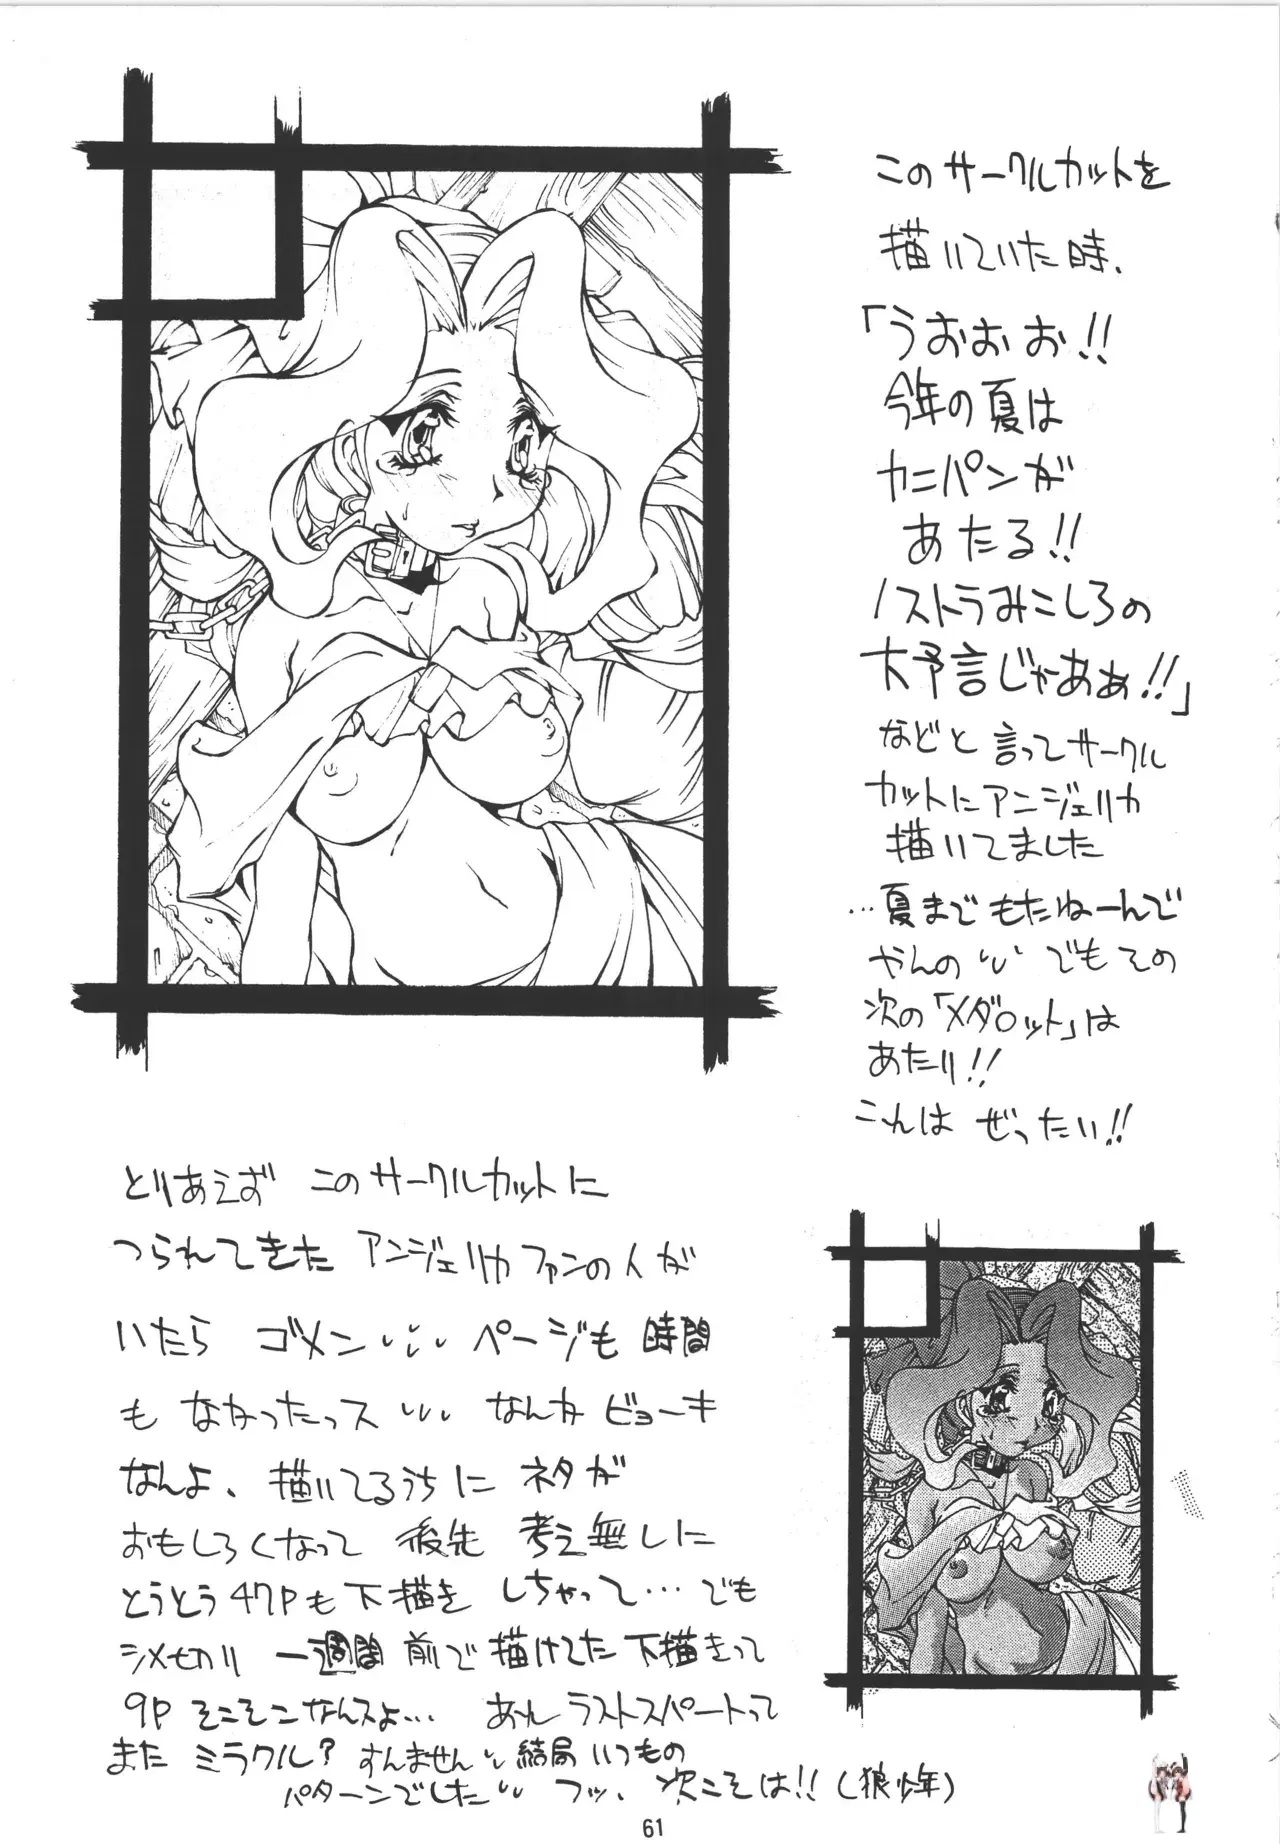 このサークルカットを
描いていた時、
「うおおお!!
今年の夏は
カニパンが
あたる!!
ノストラみこしろの
大予言じゃあぁ!!」
などと言ってサークル
カットにアンジェリカ
描いてました
…夏まで もたねーんで
やんの でもその
次の「メダロット」は
あたり!!
こんは ぜったい!!
とりあえず このサークルカットに
つられてきた アンジェリカファンの人が
いたら ゴメン ページも 時間
も なかったっス なんか ビョーキ
なんよ、描いてるうちに ネタが
おもしろくなって 後先 考え無しに
とうとう 47Pも 下描き しちゃって…でも
シメセカリ 一週間 前で 描けてた 下描きって
9P そこそこなんスよ… あぁん ラストスパートって
また ミラクル? すんません 結局いつもの
パターンでした フッ、次こそは!!(狼少年)
61